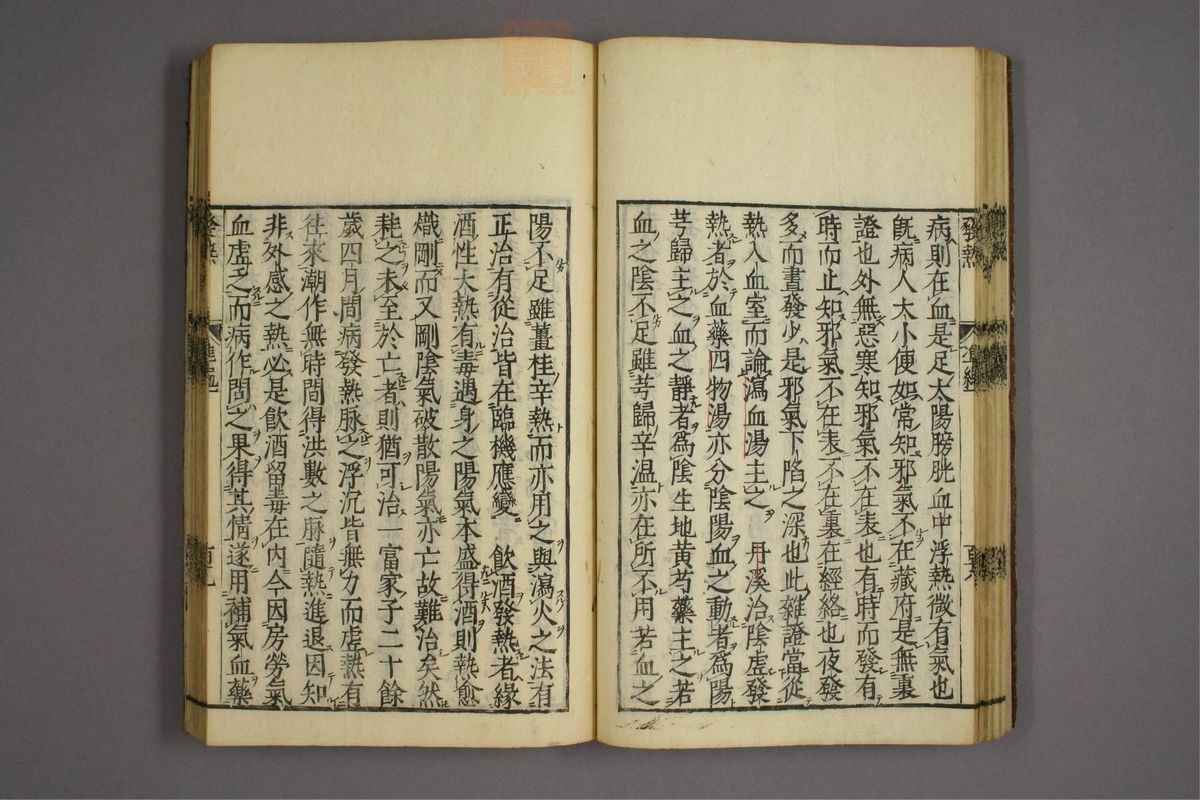 病則在血是足太陽膀胱血中浮熱微有氣也
既病人大小便如常知邪氣不在藏府是無裏
證也外無惡寒知邪氣不在表也有時而發有
時而止知邪氣不在表不在裏在經絡也夜發
多而晝發少是邪氣下陷之深也此雜證當從
熱入血室而論瀉血湯主之 丹溪治陰虛發
熱者於血藥四物湯亦分陰陽血之動者為陽
芎歸主之血之靜者為陰生地黃芍藥主之若
血之陰不足雖芎歸辛温亦在所不用若血之
陽不足雖薑桂辛熱而亦用之與瀉火之法有
正治有從治皆在臨機應變 飲酒發熱者緣
酒性大熱有毒遇身之陽氣本盛得酒則熱愈
熾剛而又剛陰氣破散陽氣亦亡故難治矣然
耗之未至於亡者則猶可治一富家子二十餘
歲四月間病發熱脉之浮沉皆無力而虛熱有
往來潮作無時間得洪數之脉隨熱進退因知
非外感之熱必是飲酒留毒在内今因房勞氣
血虛乏而病作問之果得其情遂用補氣血藥
發熱